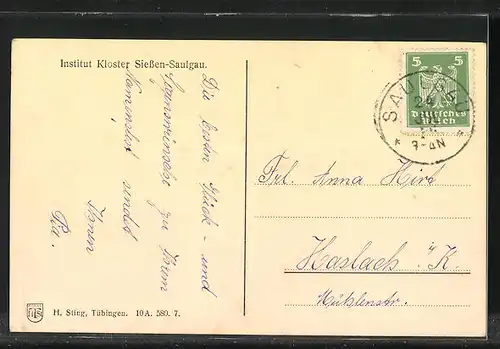 Institut Kloster Sießen-Saulgau.
Die besten Glück- und
Segenswünsche zu Ihrem
Namensfest sendet
Ihnen
Pia.
5 5
Deutsches
Reich
SAULGAU
24
7-8N
Frl. Anna Hirt
Haslach i/K.
Mühlenstr.
H. Sting, Tübingen. 10A. 589. 7.